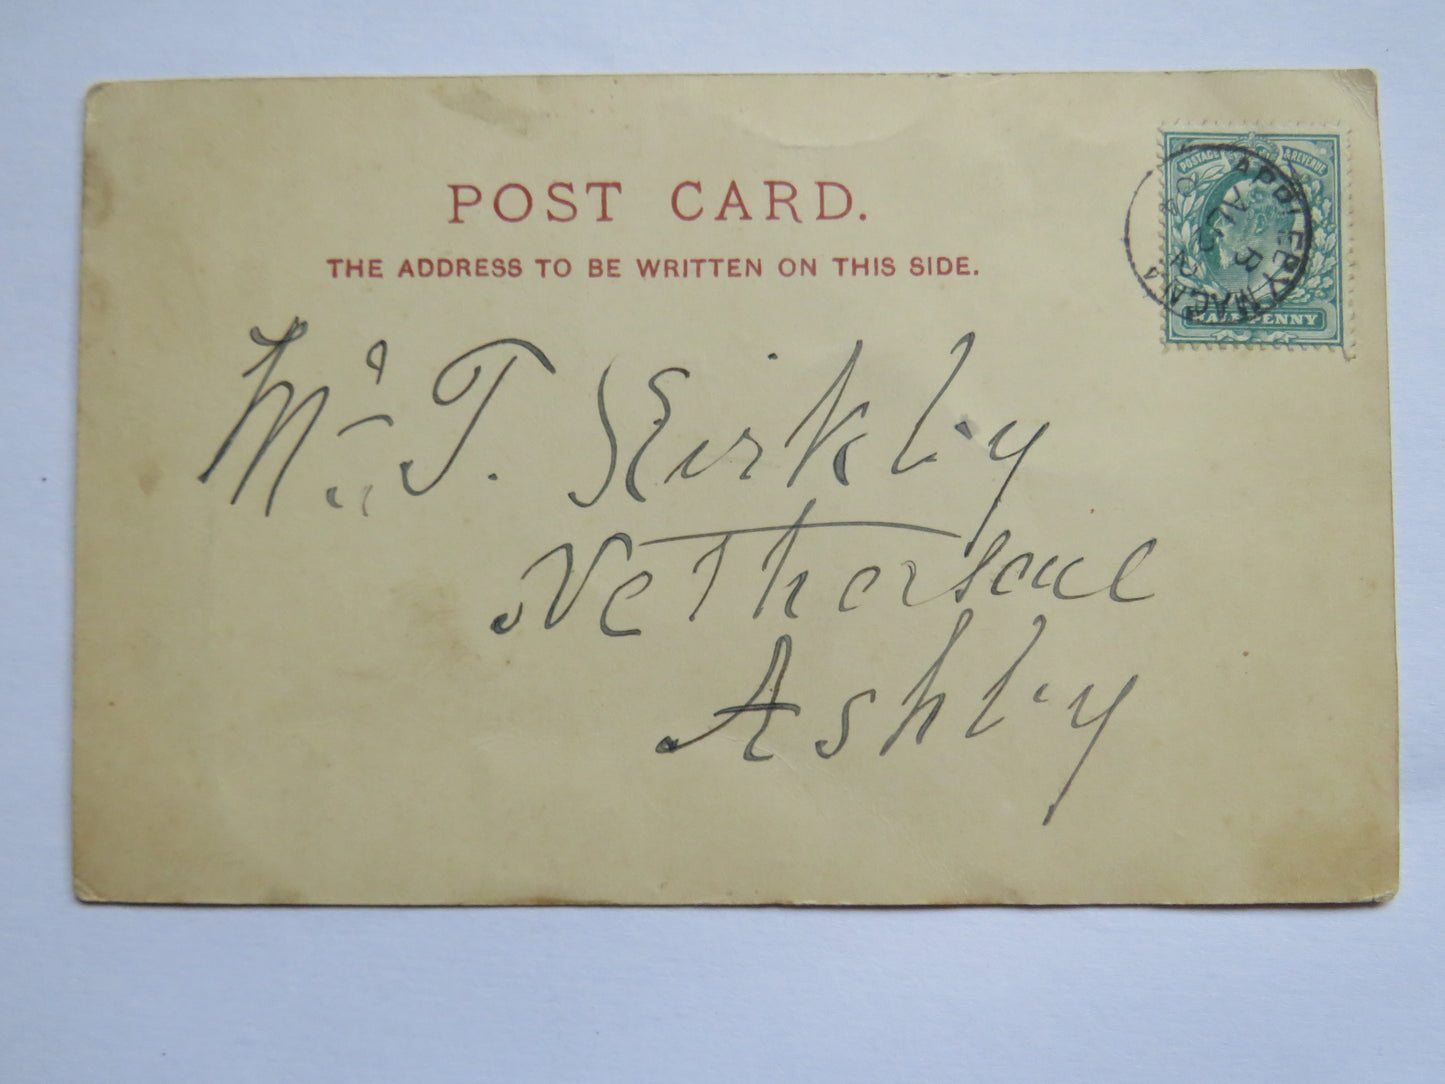 POST CARD.
THE ADDRESS TO BE WRITTEN ON THIS SIDE.
POSTAGE & REVENUE
HALFPENNY
APPLEBY MAGNA
B
AU
04
Mr T. Kirkby
Netherseal
Ashby